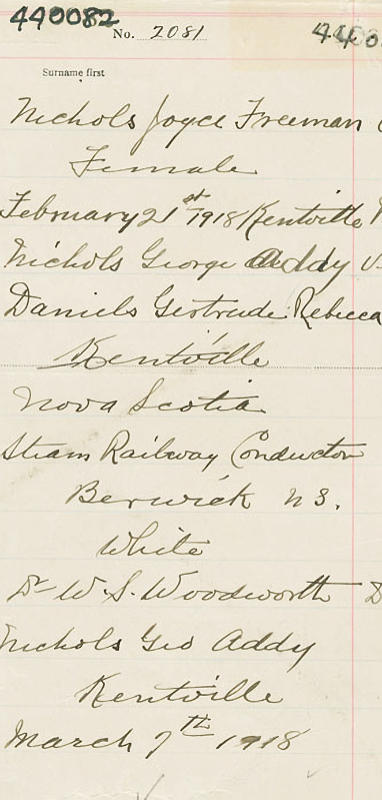 440082
No. 2081
Surname first
Nichols Joyce Freeman
Female
February 21st 1918 Kentville
Nichols George Addy
Daniels Gertrude Rebecca
Kentville
Nova Scotia
Steam Railway Conductor
Berwick N S.
White
Dr W. S. Woodworth D
Nichols Geo Addy
Kentville
March 7th 1918